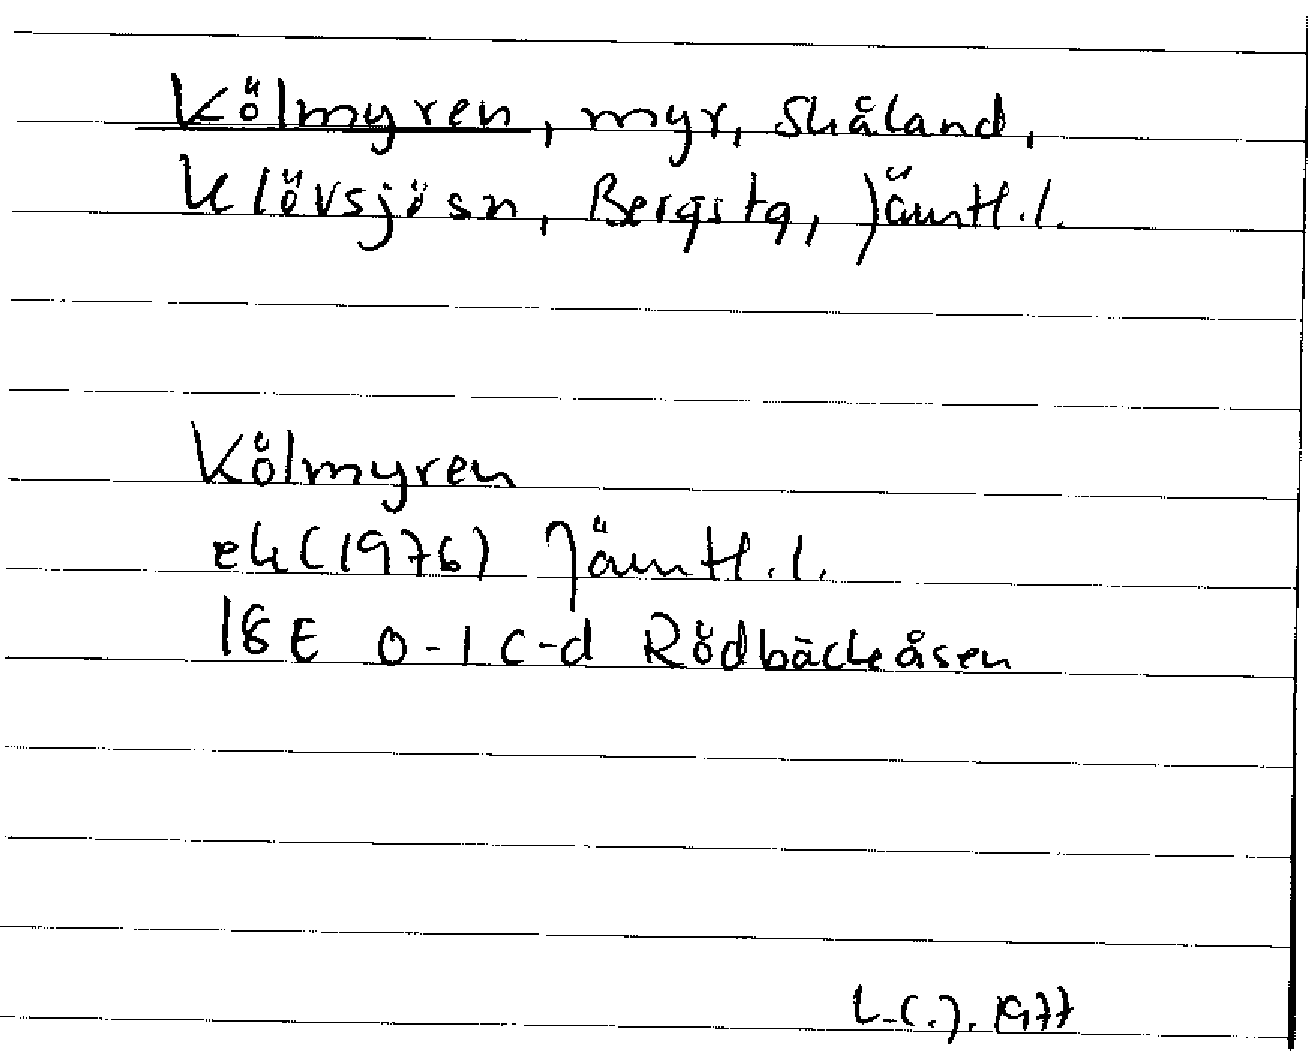 Kölmyren, myr, Skåland,
Klövsjösn, Bergstg, Jämtl.l.
Kölmyren
ek (1976) Jämtl.l.
18E 0-1 c-d Rödbäckåsen
L-C.J. 1977